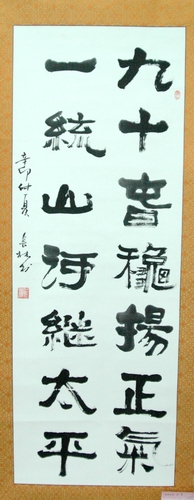 九十旾龝揚正氣
一統山河繼太平
辛卯仲夏